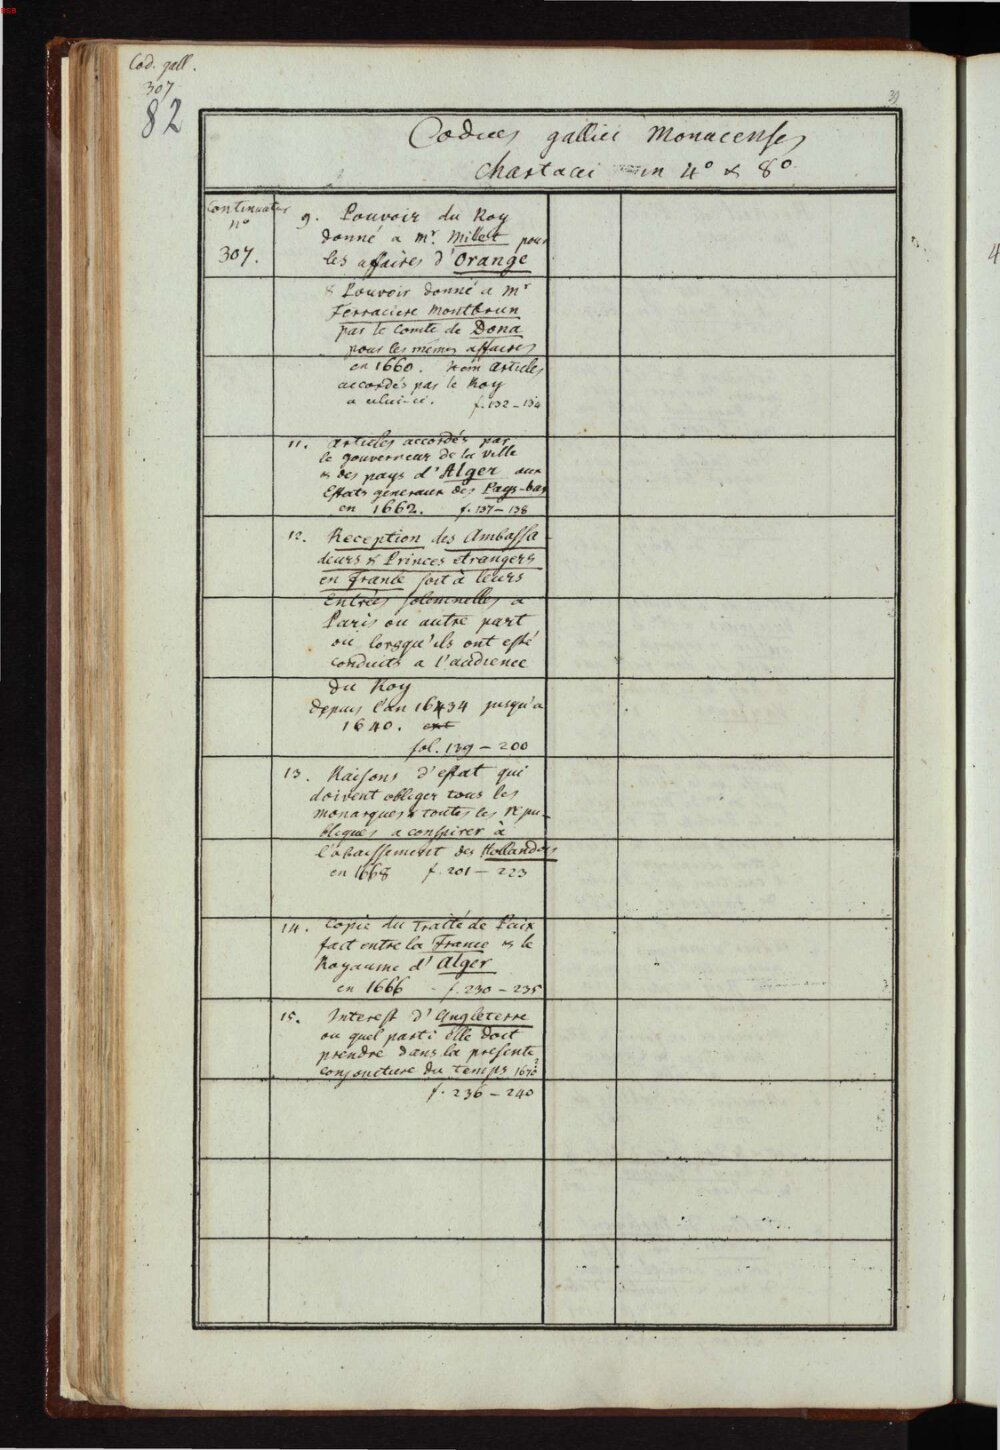 BSB
Cod. gall.
307
82
39
Codices gallici Monacenses
chartacei in 4° & 8°
Continuatur
n°
307.
9. Pouvoir du Roy
donné a mr. Millet pour
les affaires d'Orange
& Pouvoir donné a mr
Ferraciere Montbrun
par le Comte de Dona
pour les mêmes affaires
en 1660. Item articles
accordés par le Roy
a celui-ci. f. 132-134
11. articles accordés par
le gouverneur de la ville
& des pays d'Alger aux
Estats generaux des Pays-bas
en 1662. f. 137-138
12. Reception des Ambassa-
deurs & Princes etrangers
en France soit à leurs
Entrées solemnelles a
Paris ou autre part
ou lorsqu'ils ont esté
conduits a l'audience
du Roy
depuis l'an 1634 jusqu'a
1640.
fol. 139-200
13. Raisons d'estat qui
doivent obliger tous les
monarques & toutes les repu-
bliques a conspirer à
l'abaissement des Hollandois
en 1668 f. 201-223
14. Copie du Traité de Paix
fait entre la France & le
Royaume d'Alger
en 1666 f. 230-235
15. Interest d'Angleterre
ou quel parti elle doit
prendre dans la presente
conjoncture du temps 1670?
f. 236-240
4